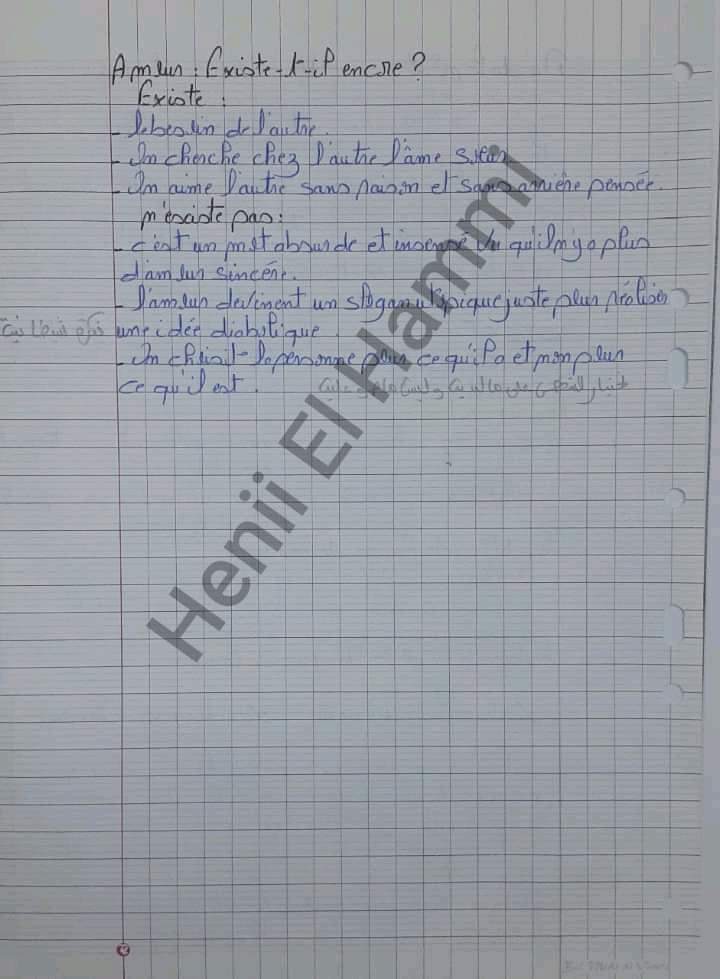 Amour : Existe-t-il encore ?
Existe :
- le besoin de l'autre.
- On cherche chez l'autre l'âme sœur
- On aime l'autre sans raison et sans arrière pensée.
n'existe pas :
- c'est un mot absurde et insensé vu qu'il n'y a plus
d'amour sincère.
- l'amour devient un slogan utopique juste pour réaliser
une idée diabolique. فكرة شيطانية
- On choisit la personne pour ce qu'il a et non pour
ce qu'il est.
Henii El Hammi